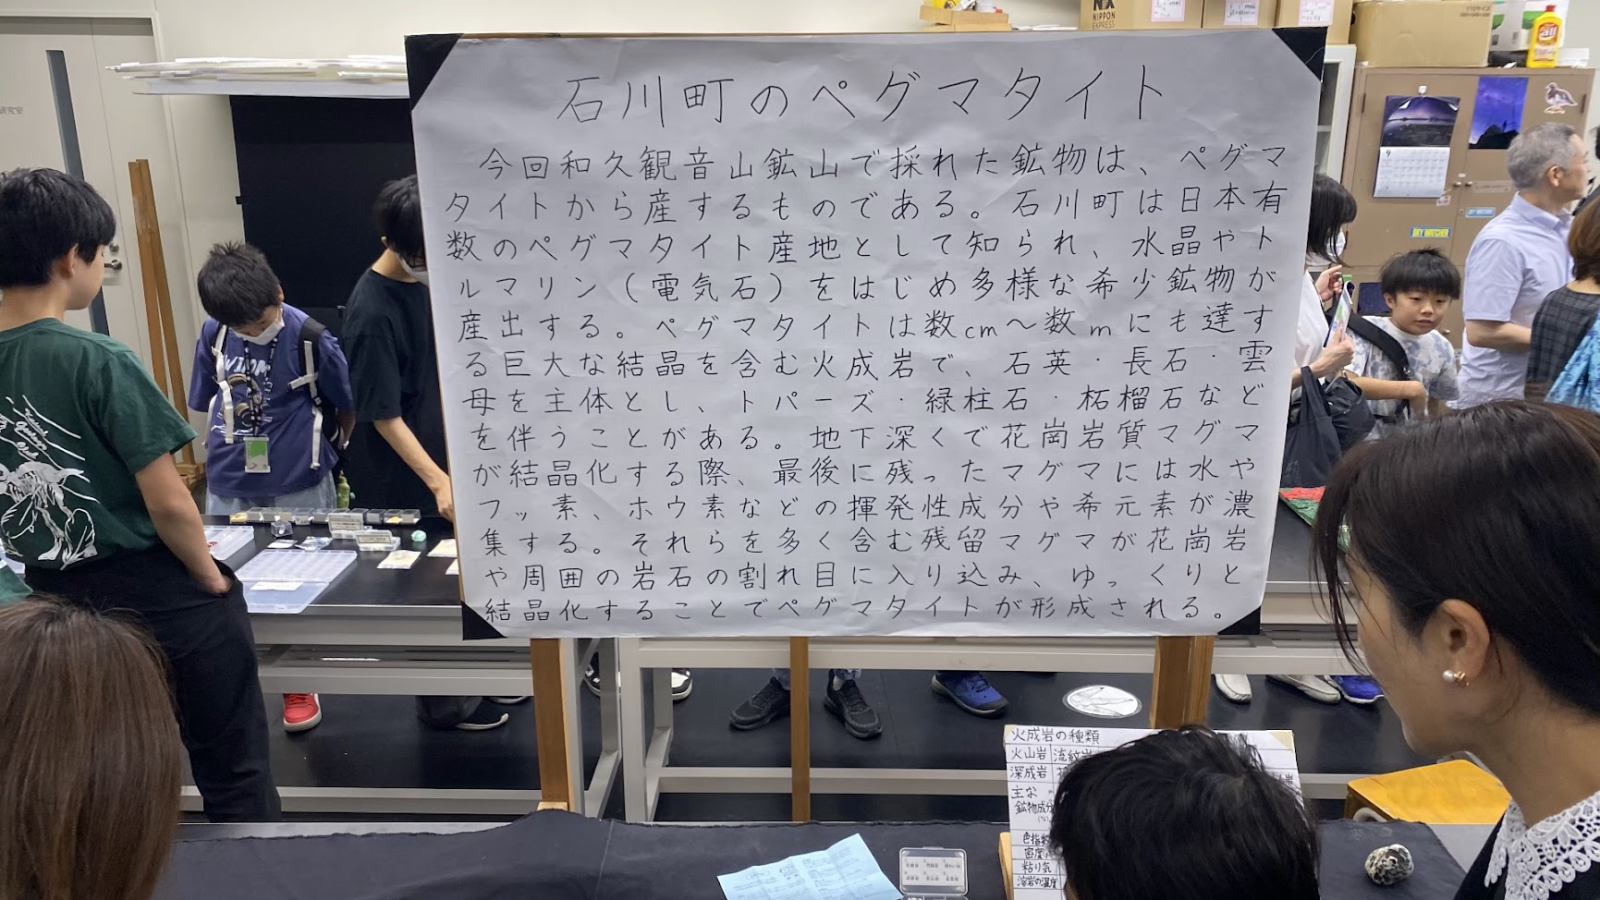 石川町のペグマタイト
今回和久観音山鉱山で採れた鉱物は、ペグマ
タイトから産するものである。石川町は日本有
数のペグマタイト産地として知られ、水晶やト
ルマリン（電気石）をはじめ多様な希少鉱物が
産出する。ペグマタイトは数cm～数mにも達す
る巨大な結晶を含む火成岩で、石英・長石・雲
母を主体とし、トパーズ・緑柱石・柘榴石など
を伴うことがある。地下深くで花崗岩質マグマ
が結晶化する際、最後に残ったマグマには水や
フッ素、ホウ素などの揮発性成分や希元素が濃
集する。それらを多く含む残留マグマが花崗岩
や周囲の岩石の割れ目に入り込み、ゆっくりと
結晶化することでペグマタイトが形成される。
火成岩の種類
火山岩 流紋
深成岩
主な
鉱物成分
密度
粘り気
溶岩の温度
NIPPON
EXPRESS
研究室
SKY WATCHER